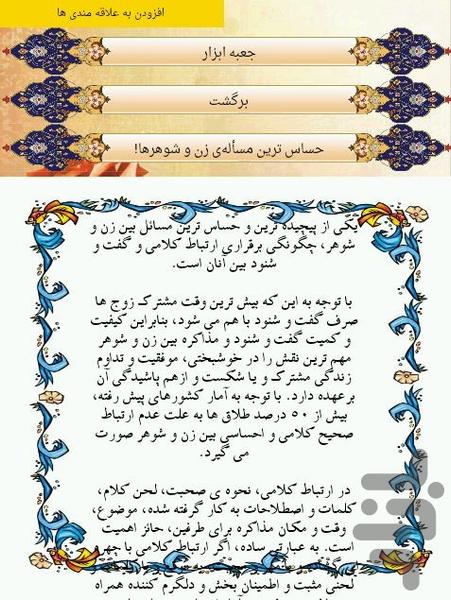 افزودن به علاقه مندی ها
جعبه ابزار
برگشت
حساس ترین مسأله‌ی زن و شوهرها!
یکی از پیچیده ترین و حساس ترین مسائل بین زن و
شوهر، چگونگی برقراری ارتباط کلامی و گفت و
شنود بین آنان است.
با توجه به این که بیش ترین وقت مشترک زوج ها
صرف گفت و شنود با هم می شود، بنابراین کیفیت
و کمیت گفت و شنود و مذاکره بین زن و شوهر
مهم ترین نقش را در خوشبختی، موفقیت و تداوم
زندگی مشترک و یا شکست و ازهم پاشیدگی آن
برعهده دارد. با توجه به آمار کشورهای پیش رفته،
بیش از ۵۰ درصد طلاق ها به علت عدم ارتباط
صحیح کلامی و احساسی بین زن و شوهر صورت
می گیرد.
در ارتباط کلامی، نحوه ی صحبت، لحن کلام،
کلمات و اصطلاحات به کار گرفته شده، موضوع،
وقت و مکان مذاکره برای طرفین، حائز اهمیت
است. به عبارتی ساده، اگر ارتباط کلامی با چهر
لحنی مثبت و اطمینان بخش و دلگرم کننده همراه